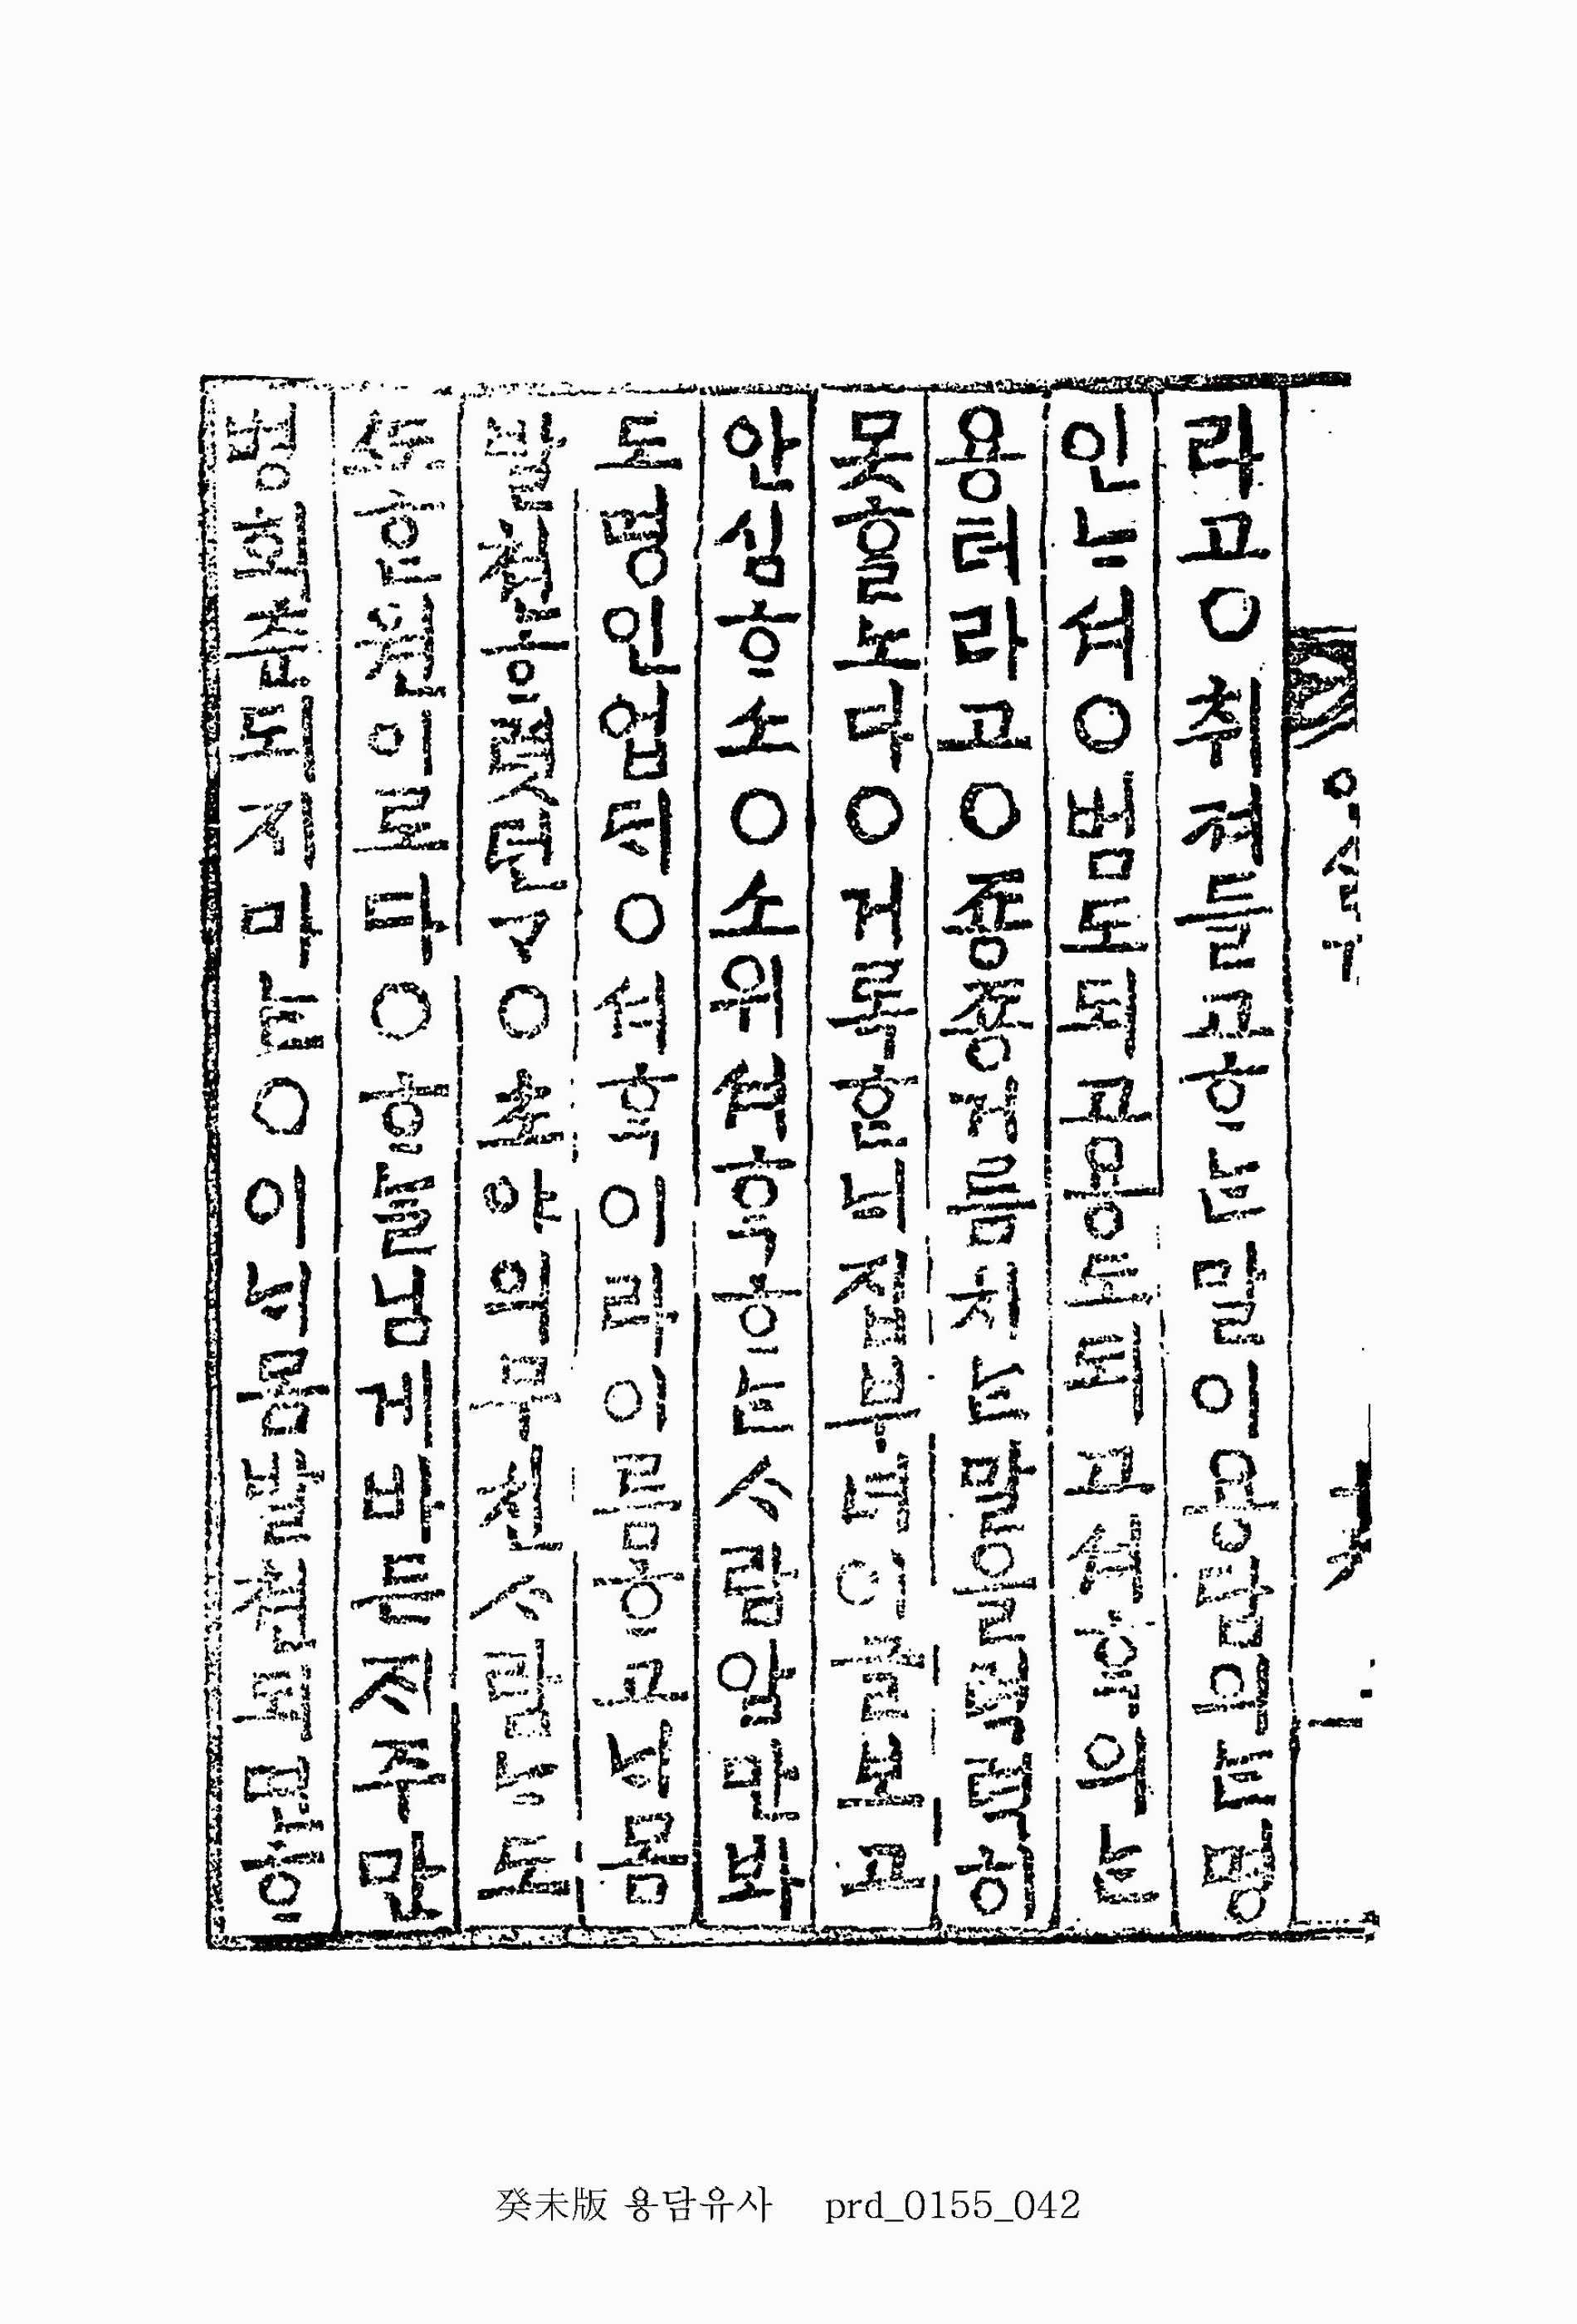 라고○취켜들고ᄒᆞᄂᆞᆫ말이용담위ᄂᆞᆫ명
인ᄂᆞ셔○범도되고용도되고셔학위ᄂᆞᆫ
용터라고○죵죵걸름치ᄂᆞᆫ말일력력히
못ᄒᆞᆯ노다○거록ᄒᆞᆫᄂᆡ집부녀이글보고
안심ᄒᆞ소○소위셔학ᄒᆞᄂᆞᆫᄉᆞ람암만봐
도명인업ᄃᆡ○셔학이라이름ᄒᆞ고ᄂᆡ몸
발쳔ᄒᆞ렷던가○초야위무친ᄉᆞ람ᄂᆞ도
ᄯᅩᄒᆞᆫ원이로다○ᄒᆞᄂᆞᆯ님게바든ᄌᆡ주만
병회츈되지마ᄂᆞᆫ○이ᄂᆡ몸발쳔되면ᄒᆞ
癸未版 용담유사 prd_0155_042